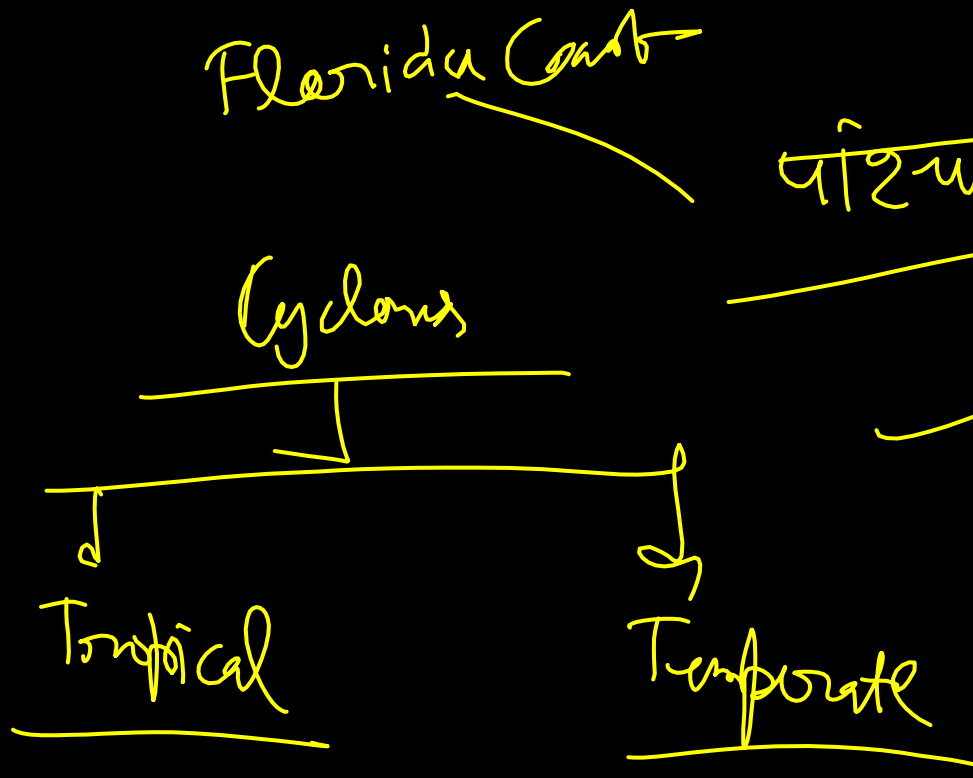 Florida Coast
Cyclones
Tropical
Temporate